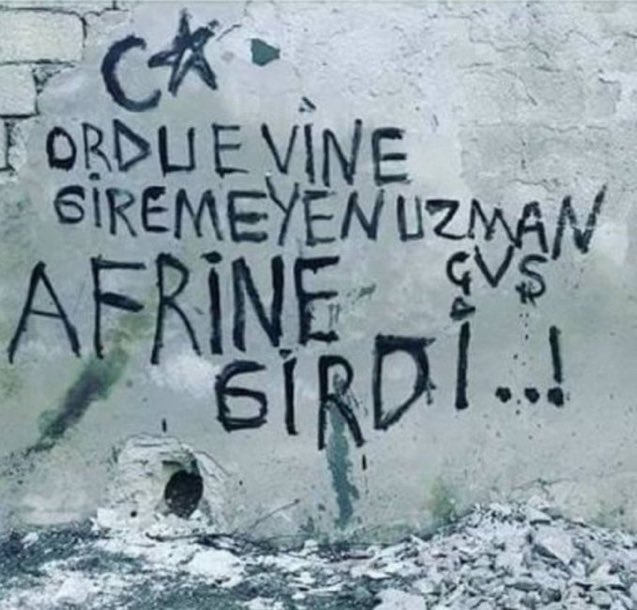 ORDUEVİNE
GİREMEYEN UZMAN
ÇVŞ
AFRİNE
GİRDİ...!